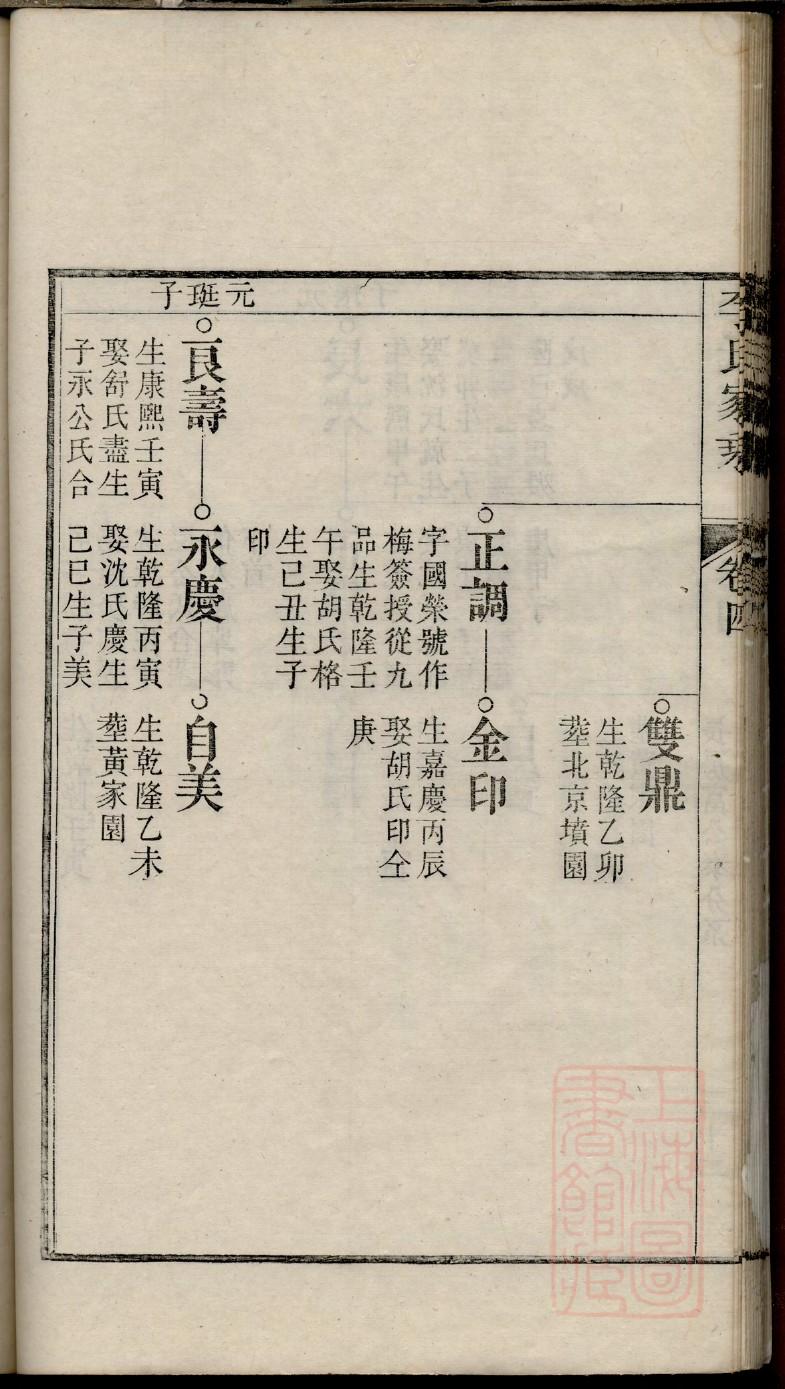 李氏家乘
卷四
雙鼎
生乾隆乙卯
塟北京墳園
正調
字國榮號作
梅簽授從九
品生乾隆壬
午娶胡氏格
生己丑生子
印
金印
生嘉慶丙辰
娶胡氏印仝
庚
元珽子
良壽
生康熙壬寅
娶舒氏盡生
子永公氏合
永慶
生乾隆丙寅
娶沈氏慶生
己巳生子美
自美
生乾隆乙未
塟黃家園
上海圖
書館藏